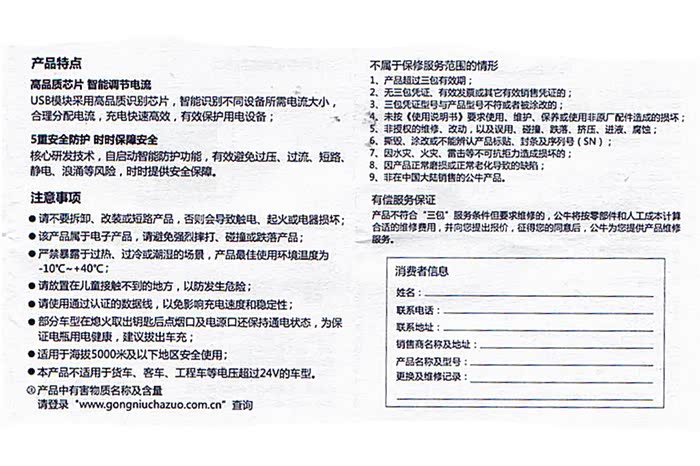 产品特点
高品质芯片 智能调节电流
USB模块采用高品质识别芯片，智能识别不同设备所需电流大小，
合理分配电流，充电快速高效，有效保护用电设备；
5重安全防护 时时保障安全
核心研发技术，自启动智能防护功能，有效避免过压、过流、短路、
静电、浪涌等风险，时时提供安全保障。
注意事项
●请不要拆卸、改装或短路产品，否则会导致触电、起火或电器损坏；
●该产品属于电子产品，请避免强烈摔打、碰撞或跌落产品；
●严禁暴露于过热、过冷或潮湿的场景，产品最佳使用环境温度为
-10℃~+40℃；
●请放置在儿童接触不到的地方，以防发生危险；
●请使用通过认证的数据线，以免影响充电速度和稳定性；
●部分车型在熄火取出钥匙后点烟口及电源口还保持通电状态，为保
证电瓶用电健康，建议拔出车充；
●适用于海拔5000米及以下地区安全使用；
●本产品不适用于货车、客车、工程车等电压超过24V的车型。
产品中有害物质名称及含量
请登录"www.gongniuchazuo.com.cn"查询
不属于保修服务范围的情形
1、产品超过三包有效期；
2、无三包凭证、有效发票或其它有效销售凭证的；
3、三包凭证型号与产品型号不符或者被涂改的；
4、未按《使用说明书》要求使用、维护、保养或使用非原厂配件造成的损坏；
5、非授权的维修、改动，以及误用、碰撞、跌落、挤压、进液、腐蚀；
6、撕毁、涂改或不能辨认产品标贴、封条及序列号（SN）；
7、因水灾、火灾、雷击等不可抗拒力造成损坏的；
8、因产品正常磨损或正常老化导致的缺陷；
9、非在中国大陆销售的公牛产品。
有偿服务保证
产品不符合"三包"服务条件但要求维修的，公牛将按零部件和人工成本计算
合适的维修费用，并向您提出报价，征得您的同意后，公牛为您提供产品维修
服务。
消费者信息
姓名：
联系电话：
联系地址：
销售商名称及地址：
产品名称及型号：
更换及维修记录：